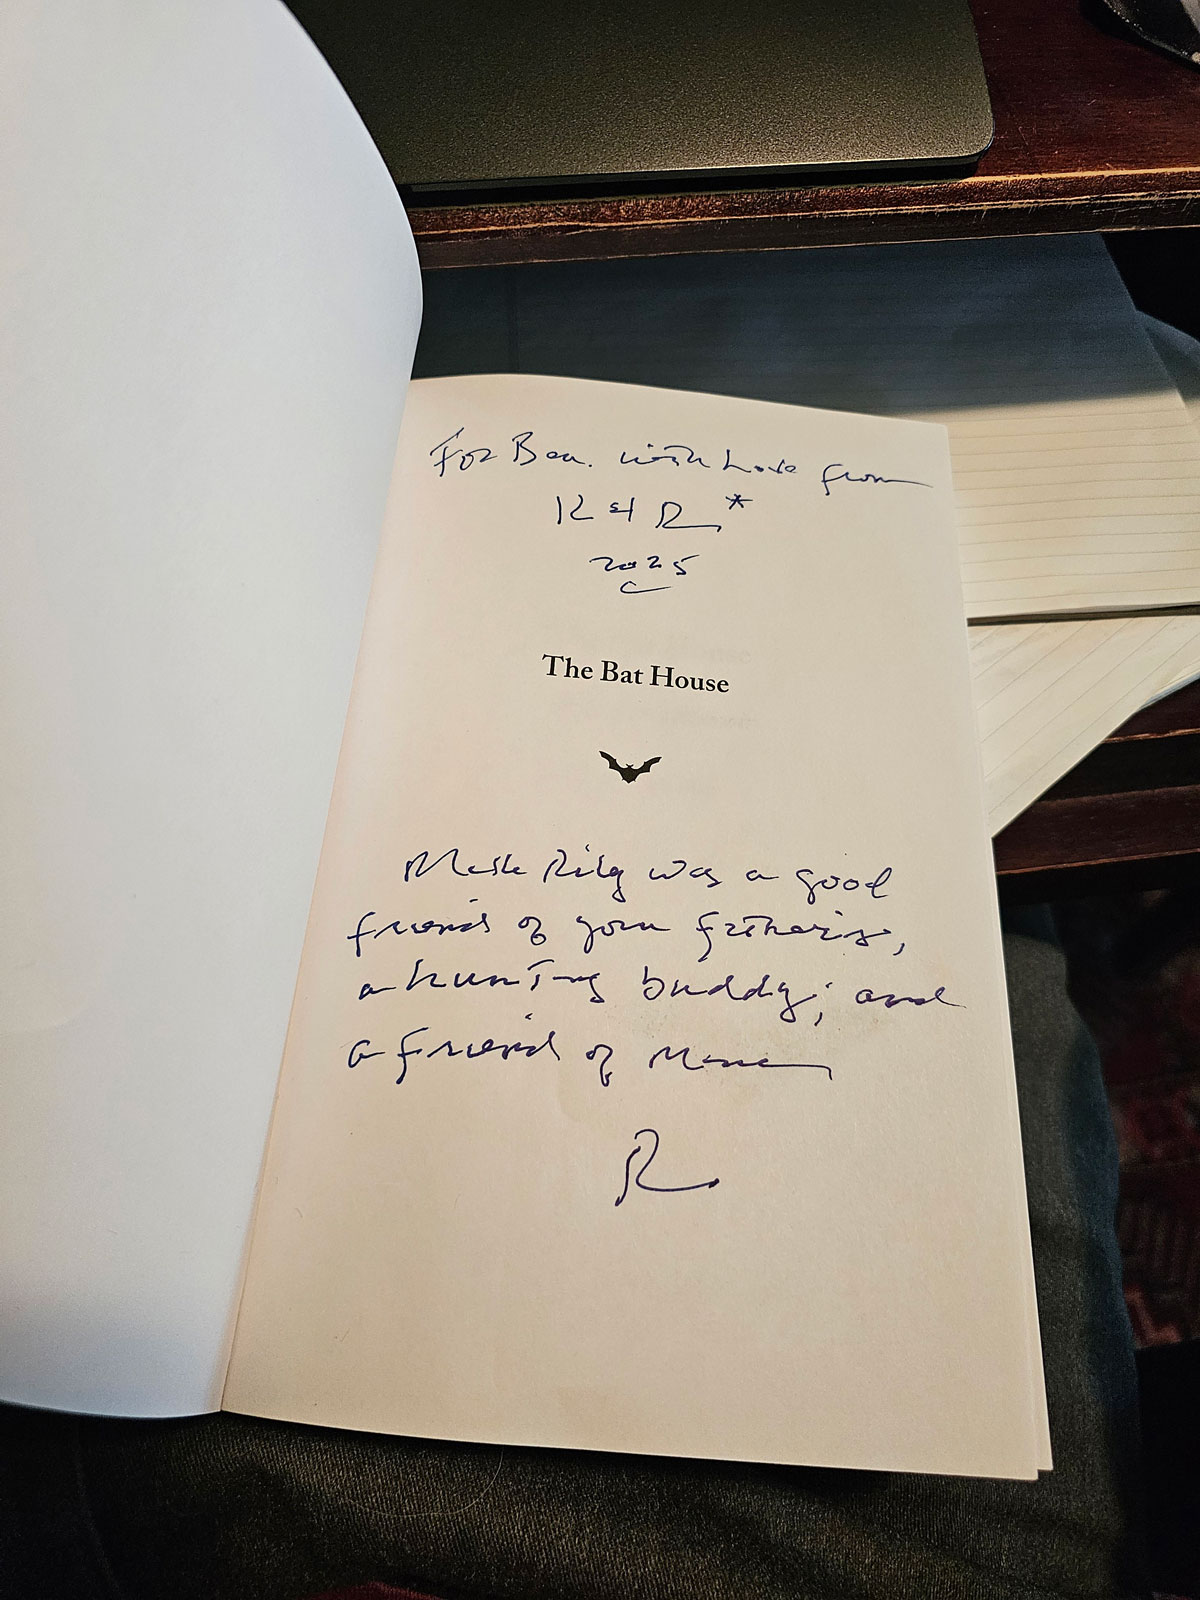 For Ben. with Love from
K & R *
2025
The Bat House
Riley was a good
friend of your father's,
a hunting buddy; and
a friend of mine
R.